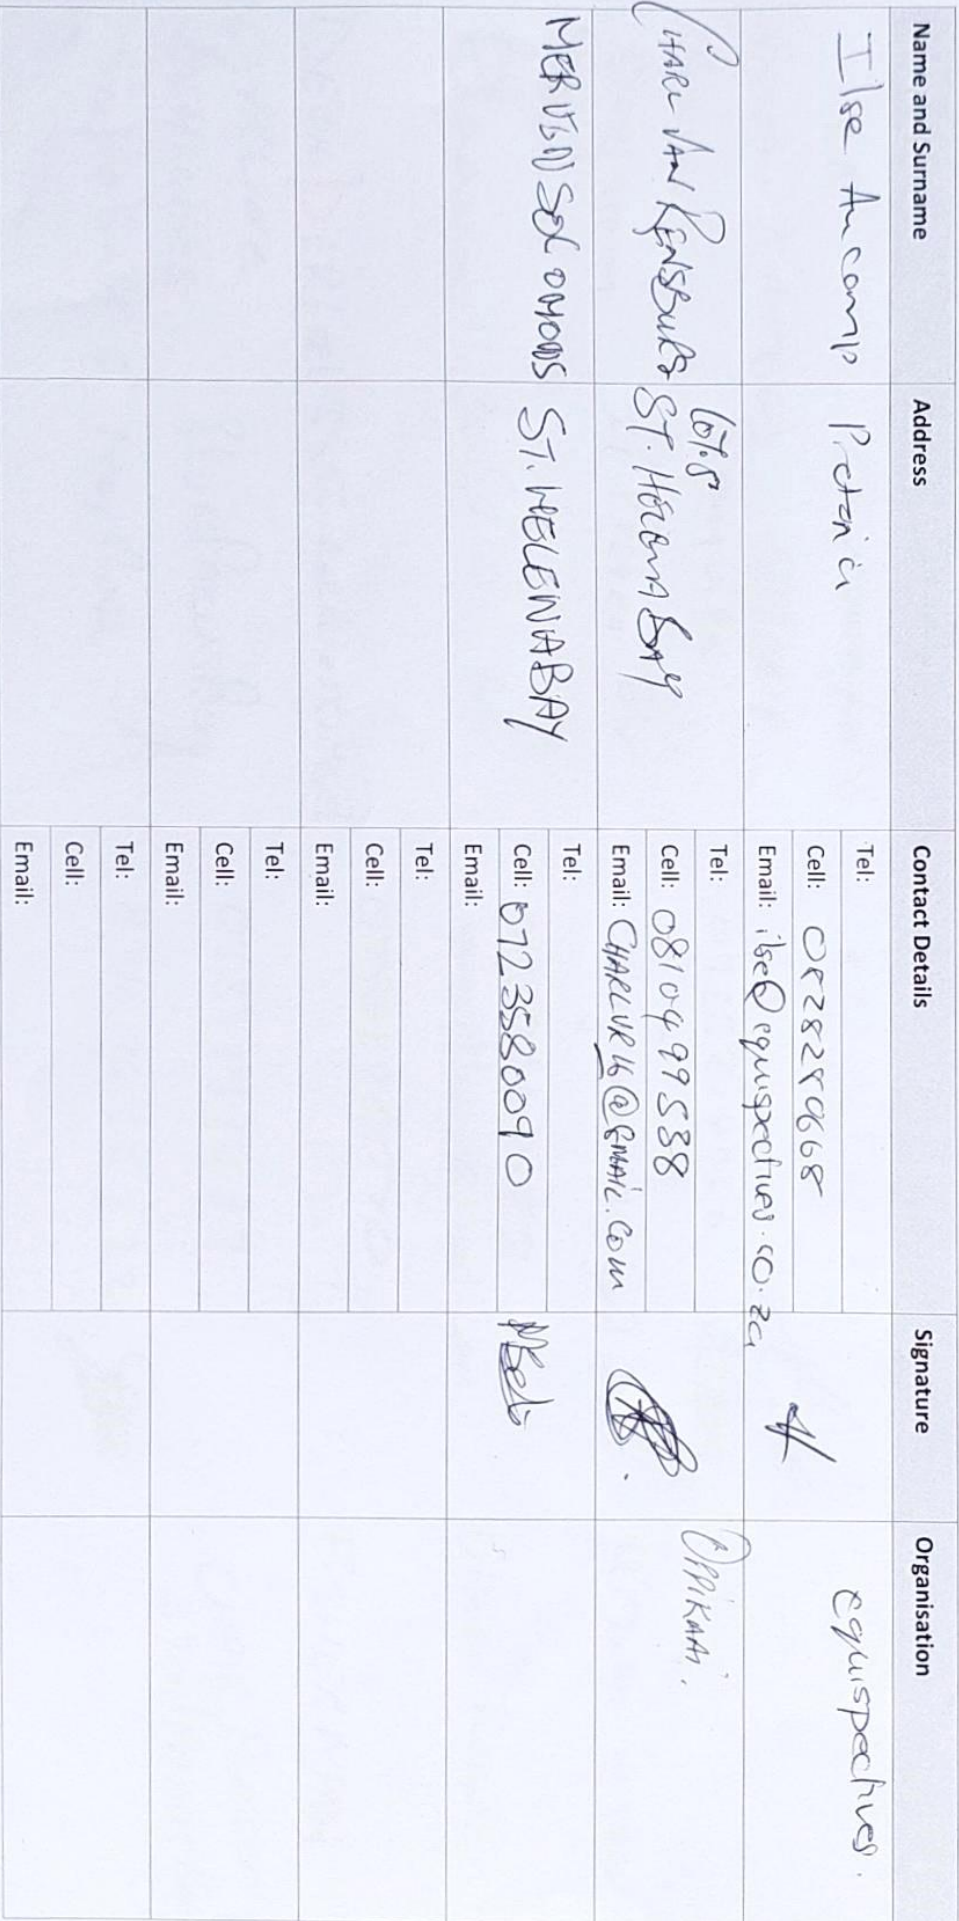 Name and Surname Address Contact Details Signature Organisation
Ilse Aucamp Pretoria Tel: equispectives.
Cell: 0828280668
Email: ilse@equispectives.co.za
CHARL VAN RENSBURG LOT.8 Tel: OPPIKAAI.
ST. HELENA BAY Cell: 0810499538
Email: CHARLVR16@GMAIL.COM
MERVIN SOLOMONS ST. HELENABAY Tel:
Cell: 0723580090
Email:
Tel:
Cell:
Email:
Tel:
Cell:
Email:
Tel:
Cell:
Email: